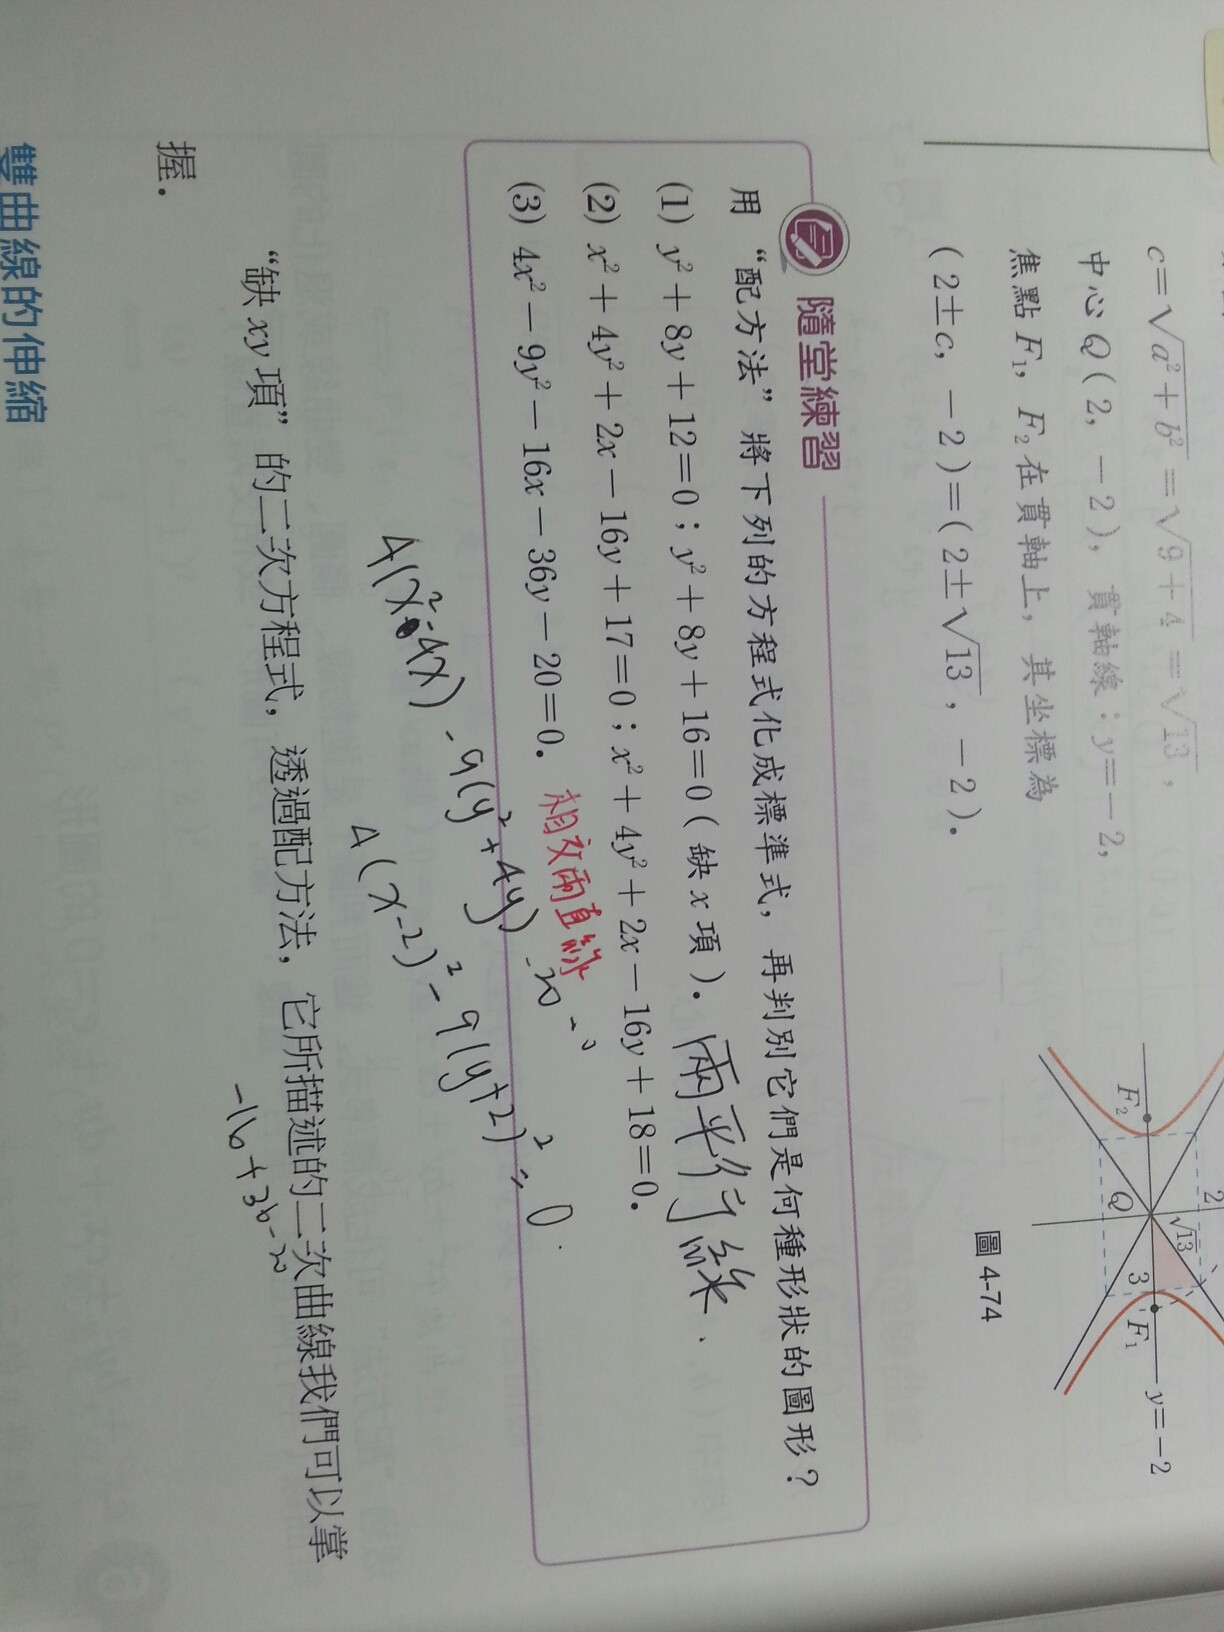 c=√a²+b²=√9+4=√13,
中心 Q(2, －2), 貫軸線：y=－2,
焦點 F₁, F₂在貫軸上, 其坐標為
(2±c, －2)=(2±√13, －2).
F₂
Q
2
√13
3
F₁
y=－2
圖 4-74
隨堂練習
用 “配方法” 將下列的方程式化成標準式, 再判別它們是何種形狀的圖形？
(1) y²+8y+12=0；y²+8y+16=0 (缺 x 項). 兩平行線.
(2) x²+4y²+2x－16y+17=0；x²+4y²+2x－16y+18=0.
(3) 4x²－9y²－16x－36y－20=0. 相交兩直線
4(x²-4x) -9(y²+4y) -20 =0
4(x-2)² -9(y+2)² = 0.
-16+36-20
“缺 xy 項” 的二次方程式, 透過配方法, 它所描述的二次曲線我們可以掌
握.
雙曲線的伸縮